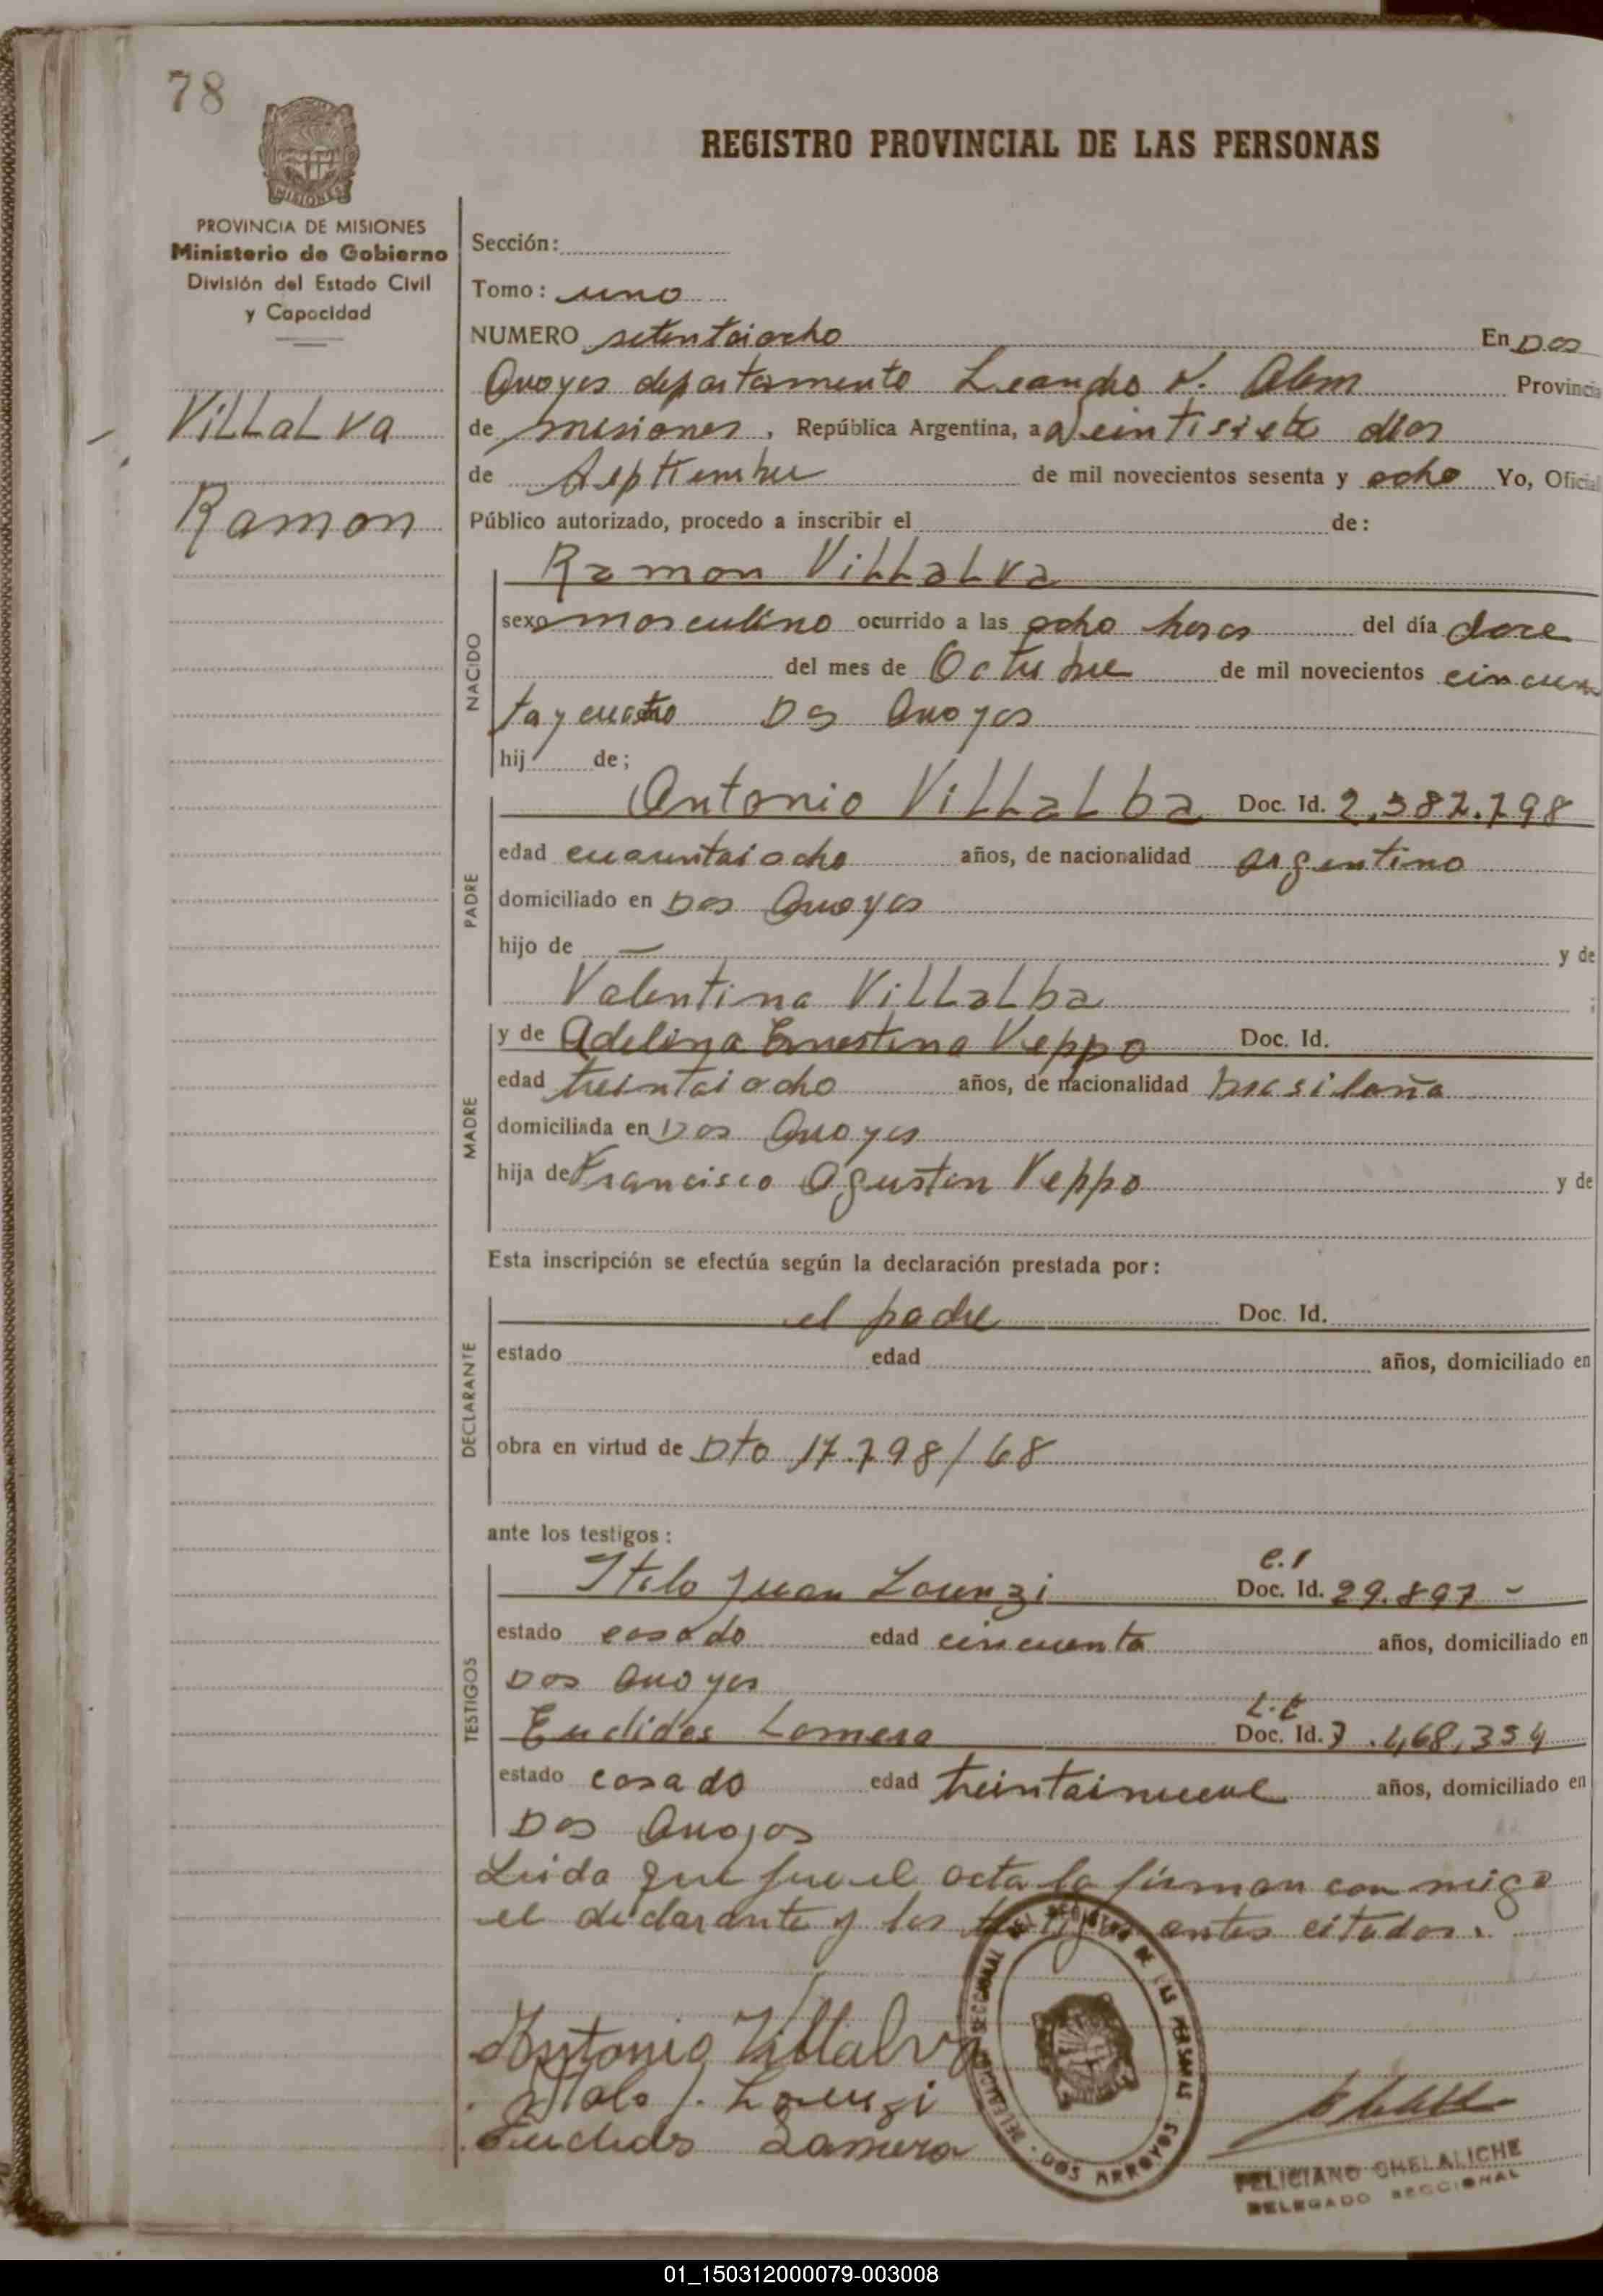 78
REGISTRO PROVINCIAL DE LAS PERSONAS
MISIONES
PROVINCIA DE MISIONES
Ministerio de Gobierno
División del Estado Civil
y Capacidad
Villalva
Ramon
Sección:
Tomo: uno
NUMERO setentaiocho En Dos
Arroyos departamento Leandro N. Alem Provincia
de misiones, República Argentina, a veintisiete dias
de septiembre de mil novecientos sesenta y ocho Yo, Oficial
Público autorizado, procedo a inscribir el de:
NACIDO
Ramon Villalva
sexo masculino ocurrido a las ocho horas del día doce
del mes de Octubre de mil novecientos cincuen
ta y cuatro Dos Arroyos
hij de;
PADRE
Antonio Villalba Doc. Id. 2.582.798
edad cuarentaiocho años, de nacionalidad argentino
domiciliado en Dos Arroyos
hijo de — y de
Valentina Villalba ;
MADRE
y de Adelina Ernestina Veppo Doc. Id.
edad treintaiocho años, de nacionalidad brasileña
domiciliada en Dos Arroyos
hija de Francisco Agustin Veppo y de
Esta inscripción se efectúa según la declaración prestada por:
DECLARANTE
el padre Doc. Id.
estado edad años, domiciliado en
obra en virtud de Dto 17.798/68
ante los testigos:
TESTIGOS
C.I
Italo Juan Lorenzi Doc. Id. 29.897 -
estado casado edad cincuenta años, domiciliado en
Dos Arroyos
L.E
Euclides Lamera Doc. Id. 7.468.354
estado casado edad treintainueve años, domiciliado en
Dos Arroyos
Leida que fue el acta la firman con migo
el declarante y los testigos antes citados.
Antonio Villalva
Italo J. Lorenzi
Euclides Lamera
DELEGACION SECCIONAL DEL REGISTRO DE LAS PERSONAS
DOS ARROYOS
FELICIANO CHELALICHE
DELEGADO SECCIONAL
01_150312000079-003008